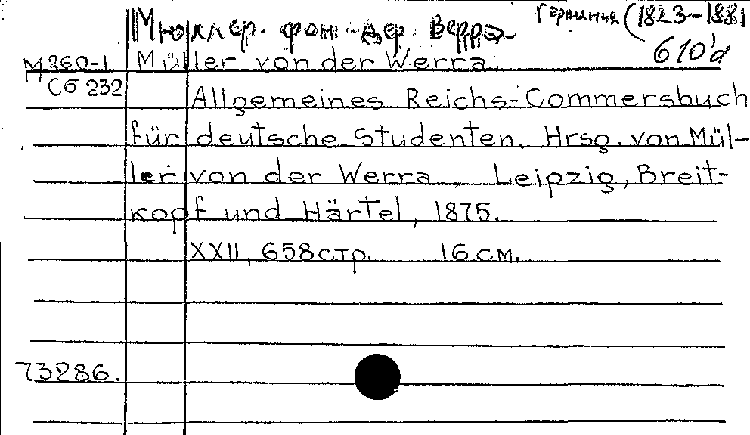 Мюллер фон-дер Верра Германия (1823-1881
М360-1 Müller von der Werra 610'd
Сб 232
Allgemeines Reichs-Commersbuch
für deutsche Studenten. Hrsg. von Mül-
ler von der Werra Leipzig, Breit-
kopf und Härtel, 1875.
XXII, 658 стр. 16 см.
73286.